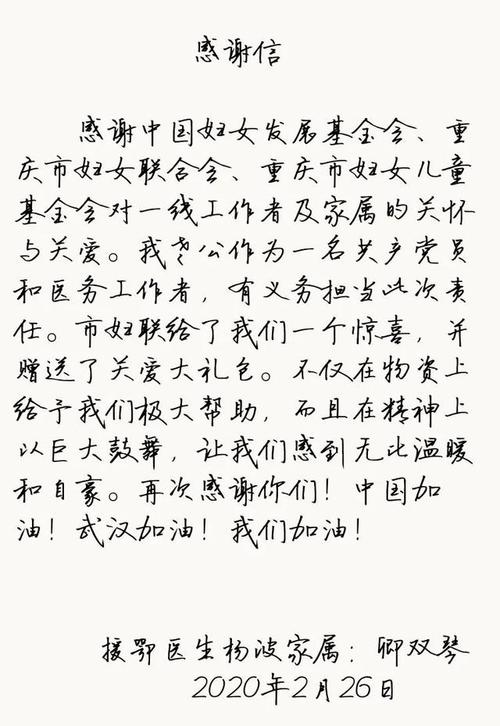 感谢信
感谢中国妇女发展基金会、重
庆市妇女联合会、重庆市妇女儿童
基金会对一线工作者及家属的关怀
与关爱。我老公作为一名共产党员
和医务工作者，有义务担当此次责
任。市妇联给了我们一个惊喜，并
赠送了关爱大礼包。不仅在物资上
给予我们极大帮助，而且在精神上
以巨大鼓舞，让我们感到无比温暖
和自豪。再次感谢你们！中国加
油！武汉加油！我们加油！
援鄂医生杨波家属：卿双琴
2020年2月26日